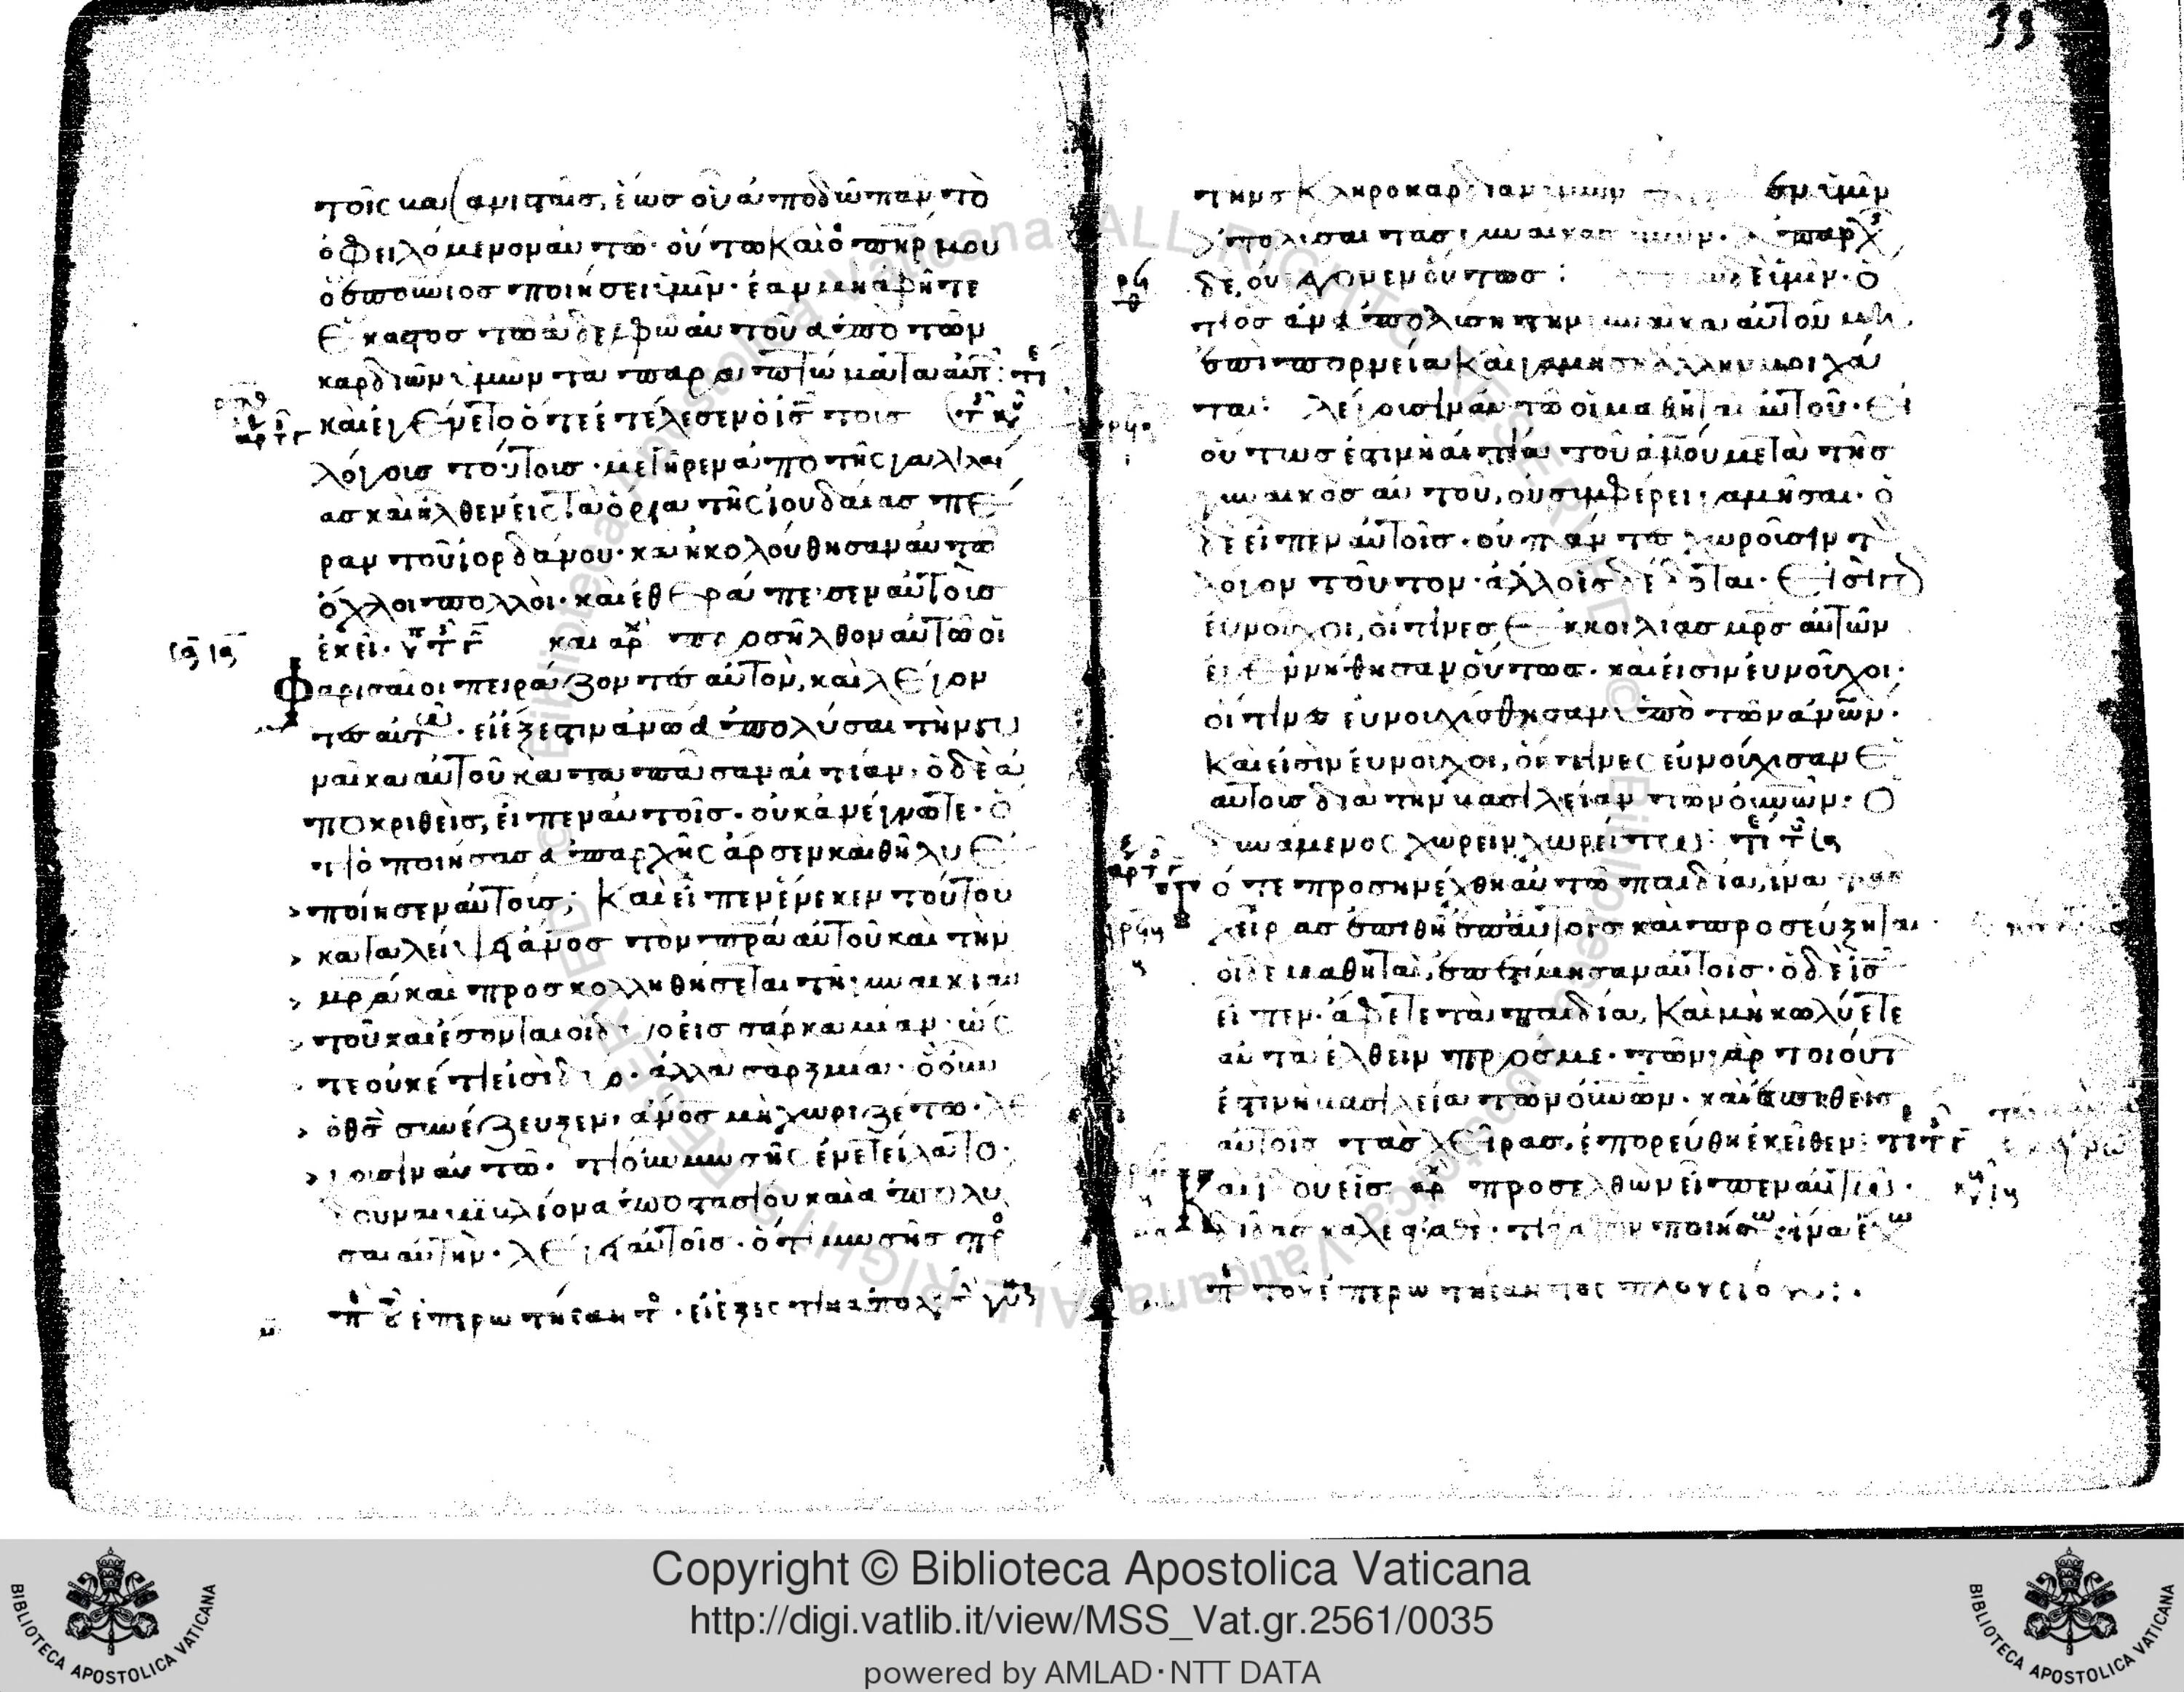 τοῖς βασανισταῖς, ἕως οὗ ἀποδῶ πᾶν τὸ
ὀφειλόμενον αὐτῶ· οὕτω καὶ ὁ π̅η̅ρ μου
ὁ ἐπουνιος ποιήσει ὑμῖν· ἐὰν μὴ ἀφῆτε
ἕκαστος τῶ ἀδελφῶ αὐτοῦ ἀπὸ τῶν
καρδιῶν ὑμῶν τὰ παραπτώματα αὐτ
καὶ ἐγένετο ὅτε ἐτέλεσεν ὁ ι̅ς̅ τοὺς
λόγους τούτους· μετῆρεν ἀπὸ τῆς γαλιλαί
ας καὶ ἦλθεν εἰς τὰ ὅρια τῆς ἰουδαίας πέ
ραν τοῦ ἰορδάνου· καὶ ἠκολούθησαν αὐτῶ
ὄχλοι πολλοί· καὶ ἐθεράπευσεν αὐτοὺς
ἐκεῖ· καὶ προσῆλθον αὐτῶ οἱ
Φαρισαῖοι πειράζοντες αὐτὸν, καὶ λέγον
τες αὐτῶ· εἰ ἔξεστιν ἀν̅ω̅ ἀπολῦσαι τὴν γυ
ναῖκα αὐτοῦ κατὰ πᾶσαν αἰτίαν· ὁ δὲ ἀ
ποκριθεὶς, εἶπεν αὐτοῖς· οὐκ ἀνέγνωτε· ὅ
τι ὁ ποιήσας ἀπαρχῆς ἄρσεν καὶ θῆλυ ἐ
ποίησεν αὐτούς; Καὶ εἶπεν ἕνεκεν τούτου
καταλείψει ἄν̅ο̅ς τὸν π̅ρ̅α αὐτοῦ καὶ τὴν
μ̅ρ̅α καὶ προσκολληθήσεται τῆ γυναικὶ αὐ
τοῦ καὶ ἔσονται οἱ δύο εἰς σάρκα μίαν· ὥς
τε οὐκέτι εἰσὶ δύο· ἀλλὰ σὰρξ μία· ὃ οὖν
ὁ θ̅ς̅ συνέζευξεν, ἄν̅ο̅ς μὴ χωριζέτω· λέ
γουσιν αὐτῶ· τί οὖν μωσῆς ἐνετείλατο·
δοῦναι βιβλίον ἀποστασίου καὶ ἀπολυ
σαι αὐτὴν· λέγει αὐτοῖς· ὅτι μωσῆς πρ
τὴν σκληροκαρδίαν ὑμῶν ἐπ ὑμῖν
ἀπολῦσαι τὰς γυναῖκας ὑμῶν· ἀπαρχ
δὲ, οὐ γέγονεν οὕτως· ὑμῖν· ὅ
τι ὃς ἂν ἀπολύση τὴν γυναῖκα αὐτοῦ μὴ
ἐπὶ πορνεία καὶ γαμήση ἄλλην, μοιχᾶ
ται· λέγουσιν αὐτῶ οἱ μαθηταὶ αὐτοῦ· εἰ
οὕτως ἐστὶν ἡ αἰτία τοῦ ἀν̅ου μετὰ τῆς
γυναικὸς αὐτοῦ, οὐ συμφέρει γαμῆσαι· ὁ
δὲ εἶπεν αὐτοῖς· οὐ πάντες χωροῦσιν τ
λόγον τοῦτον· ἀλλ' οἷς δέδοται· εἰσὶ γ
εὐνοῦχοι, οἵτινες ἐκ κοιλίας μ̅ρ̅ς αὐτῶν
ἐγεννήθησαν οὕτως· καὶ εἰσὶν εὐνοῦχοι·
οἵτινες εὐνουχίσθησαν ὑπὸ τῶν ἀν̅ω̅ν·
Καὶ εἰσὶν εὐνοῦχοι, οἵτινες εὐνούχισαν ἑ
αὐτοὺς διὰ τὴν βασιλείαν τῶν οὐν̅ω̅ν· Ὁ
δυνάμενος χωρεῖν χωρείτω
ότε προσηνέχθη αὐτῶ παιδία, ἵνα τὰς
χεῖρας ἐπιθῆ ἐπ' αὐτοῖς καὶ προσεύξηται
οἱ δὲ μαθηταὶ, ἐπετίμησαν αὐτοῖς· ὁ δὲ ι̅ς̅
εἶπεν· ἄφετε τὰ παιδία, Καὶ μὴ κωλύετε
αὐτὰ ἐλθεῖν πρός με· τῶν γὰρ τοιούτ
ἐστὶν ἡ βασιλεία τῶν οὐν̅ω̅ν· καὶ ἐπιθεὶς
αὐτοῖς τὰς χεῖρας, ἐπορεύθη ἐκεῖθεν
Καὶ ἰδοὺ εἷς προσελθὼν εἶπεν αὐτῶ·
διδάσκαλε ἀγαθὲ· τί ἀγαθὸν ποιήσω ἵνα ἔχω
περὶ τοῦ ἐπερωτήσαντος πλουσίου
Copyright © Biblioteca Apostolica Vaticana
http://digi.vatlib.it/view/MSS_Vat.gr.2561/0035
powered by AMLAD·NTT DATA
BIBLIOTECA APOSTOLICA VATICANA
BIBLIOTECA APOSTOLICA VATICANA